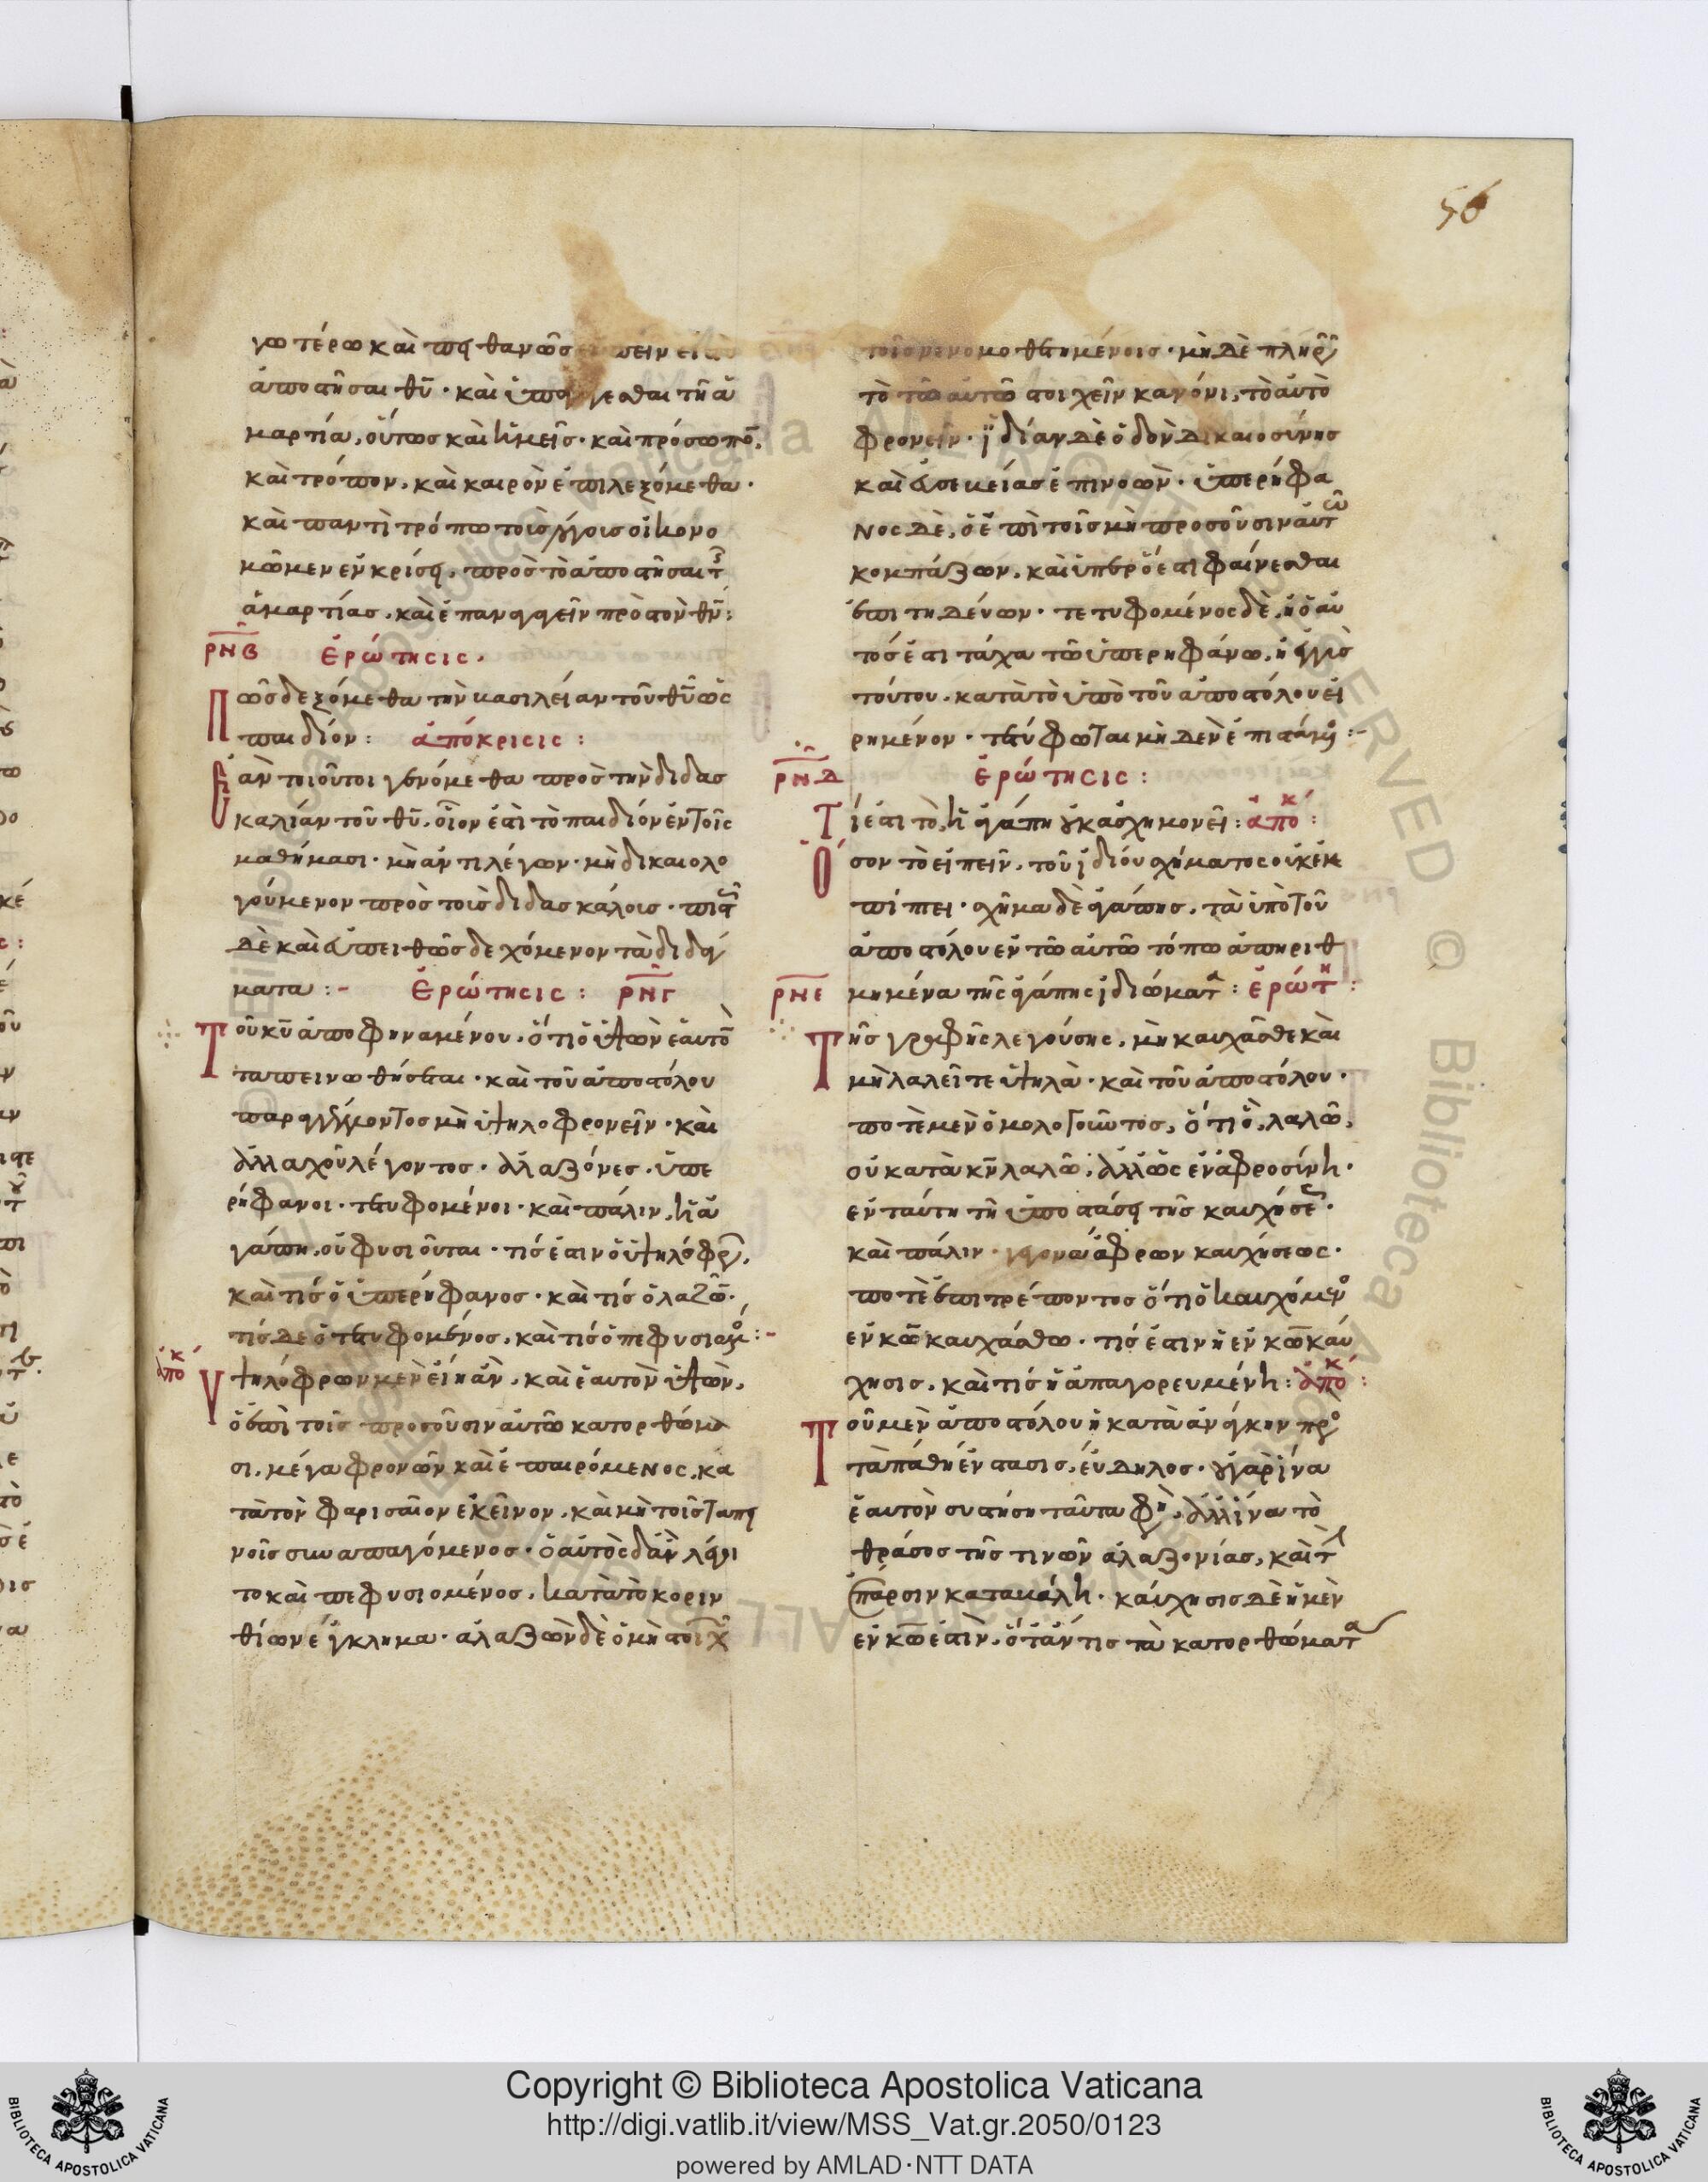 56
γωτέρω καὶ πιθανῶς εἰπεῖν εἰς τὸ
ἀποστῆσαι θῦ · καὶ ὑπαγαγέσθαι τῆ ἁ
μαρτία, οὕτως καὶ ἡμεῖς · καὶ πρόσωπον,
καὶ τρόπον, καὶ καιρὸν ἐπιλεξόμεθα ·
καὶ παντὶ τρόπω τοῖς λόγοις οἰκονο
μῶμεν ἐν κρίσει, πρὸς τὸ ἀποστῆσαι τ
ἁμαρτίας, καὶ ἐπαναγαγεῖν πρὸς τὸν θν :
ΡΝΒ ἐρώτησις ·
Πῶς δεξόμεθα τὴν βασιλείαν τοῦ θῦ ὡς
παιδίον : ἀπόκρισις :
Ἐὰν τοιοῦτοι γενόμεθα πρὸς τὴν διδασ
καλίαν τοῦ θῦ, οἷον ἐστὶ τὸ παιδίον ἐν τοῖς
μαθήμασι · μὴ ἀντιλέγων · μὴ δικαιολο
γούμενον πρὸς τοῖς διδασκάλοις · πιστ
δὲ καὶ εὐπειθῶς δεχόμενον τὰ διδάγ
ματα :- Ἐρώτησις : ΡΝΓ
Τοῦ κῦ ἀποφηναμένου, ὅτι ὁ ὑψῶν ἑαυτὸν
ταπεινωθήσεται · καὶ τοῦ ἀποστόλου
παραγγέλλοντος μὴ ὑψηλοφρονεῖν · καὶ
ἀλλαχοῦ λέγοντος · ἀλαζόνες · ὑπε
ρήφανοι · τετυφομένοι · καὶ πάλιν, ἡ ἀ
γάπη, οὐ φυσιοῦται · τίς ἐστιν ὁ ὑψηλόφρ,
καὶ τίς ὁ ὑπερήφανος · καὶ τίς ὁ λαζῶν ·
τίς δὲ ὁ τετυφομένος, καὶ τίς ὁ πεφυσιωμ :-
ἀπόκ Ὑψηλόφρων μὲν εἴη ἂν, καὶ ἑαυτὸν ὑψῶν,
ὁ ἐπὶ τοῖς προσοῦσιν αὐτῶ κατορθώμα
σι, μέγα φρονῶν καὶ ἐπαιρόμενος, κα
τὰ τὸν φαρισαῖον ἐκεῖνον, καὶ μὴ τοῖς ταπει
νοῖς συναπαγόμενος · ὁ αὐτὸς δ' ἂν λέγοι
το καὶ πεφυσιομένος, κατὰ τὸ κοριν
θίων ἔγκλημα · ἀλαζὼν δὲ ὁ μὴ στοιχ
τοῖς νενομοθετημένοις · μὴ δὲ πληρ
τὸ τῶ αὐτῶ στοιχεῖν κανόνι, τὸ αὐτὸ
φρονεῖν · ἰδίαν δὲ ὁδὸν δικαιοσύνης
καὶ εὐσεβείας ἐπινοῶν · ὑπερήφα
νος δὲ, ὁ ἐπὶ τοῖς μὴ προσοῦσιν αὐτῶ
κομπάζων, καὶ ὑπὲρ ὅ ἐστι φαίνεσθαι
ἐπιτηδεύων · τετυφομένος δὲ, ἢ ὁ αὐ
τός ἐστι τάχα τῶ ὑπερηφάνω, ἢ ἐγγὺς
τούτου, κατὰ τὸ ὑπὸ τοῦ ἀποστόλου εἰ
ρημένον · τετύφωται μὴ δὲν ἐπιστάμο :-
ΡΝΔ ἐρώτησις :
Τί ἐστι τὸ, ἡ ἀγάπη οὐκ ἀσχημονεῖ : ἀπόκ :
Ὅσον τὸ εἰπεῖν, τοῦ ἰδίου σχήματος οὐκ ἐκ
πίπτει · σχῆμα δὲ ἀγάπης, τὰ ὑπὸ τοῦ
ἀποστόλου ἐν τῶ αὐτῶ τόπω ἀπηριθ
ΡΝΕ μημένα τῆς ἀγάπης ἰδιώματα : ἐρώτη :
Τῆς γραφῆς λεγούσης, μὴ καυχᾶσθε καὶ
μὴ λαλεῖτε ὑψηλὰ · καὶ τοῦ ἀποστόλου ·
ποτὲ μὲν ὁμολογοῦντος, ὅτι ὃ, λαλῶ,
οὐ κατὰ κν λαλῶ, ἀλλ' ὡς ἐν ἀφροσύνη ·
ἐν ταύτη τῆ ὑποστάσει τῆς καυχήσε ·
καὶ πάλιν · γέγονα ἄφρων καυχήσεως ·
ποτὲ ἐπιτρέποντος ὅτι ὁ καυχόμενο
ἐν κω καυχάσθω · τίς ἐστιν ἡ ἐν κω καύ
χησις, καὶ τίς ἡ ἀπαγορευμένη : ἀπόκ :
Τοῦ μὲν ἀποστόλου ἡ κατὰ ἀνάγκην προ
τὰ πάθη ἔνστασις, εὔδηλος · οὐ γὰρ ἵνα
ἑαυτὸν συστήση ταῦτα φη, ἀλλ' ἵνα τὸ
θράσος τῆς τινῶν ἀλαζονίας, καὶ τ
ἔπαρσιν καταβάλη · καύχησις δὲ ἡ μὲν
ἐν κω ἐστὶν, ὅτ' ἄν τις τὰ κατορθώματα
Copyright © Biblioteca Apostolica Vaticana
http://digi.vatlib.it/view/MSS_Vat.gr.2050/0123
powered by AMLAD·NTT DATA
BIBLIOTECA APOSTOLICA VATICANA
BIBLIOTECA APOSTOLICA VATICANA